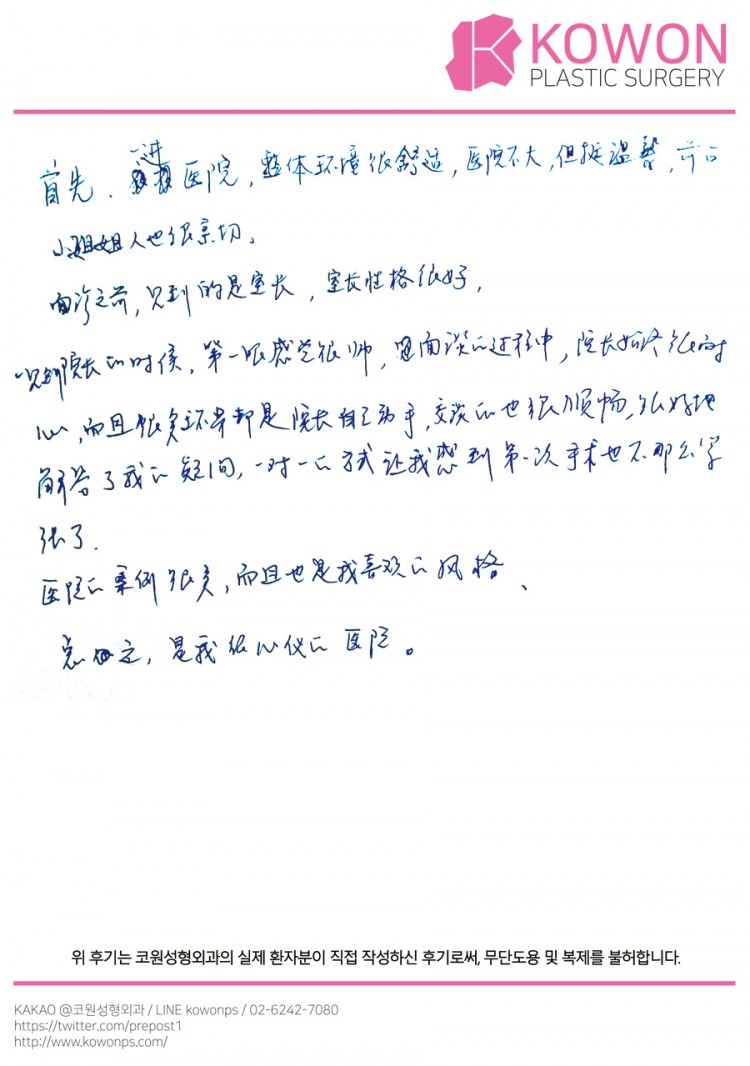 KOWON
PLASTIC SURGERY
首先、一进医院,整体环境很舒适,医院不大,但挺温馨,前台
小姐姐人也很亲切、
面诊之前,见到的是室长,室长性格很好,
见到院长的时候,第一眼感觉很帅,面谈的过程中,院长始终很耐
心,而且很多环节都是院长自己动手,交谈的也很顺畅,很好地
解答了我的疑问,一对一的方式让我感到第一次手术也不那么紧
张了.
医院的案例很多,而且也是我喜欢的风格、
总之,是我很心仪的医院。
위 후기는 코원성형외과의 실제 환자분이 직접 작성하신 후기로써, 무단도용 및 복제를 불허합니다.
KAKAO @코원성형외과 / LINE kowonps / 02-6242-7080
https://twitter.com/prepost1
http://www.kowonps.com/